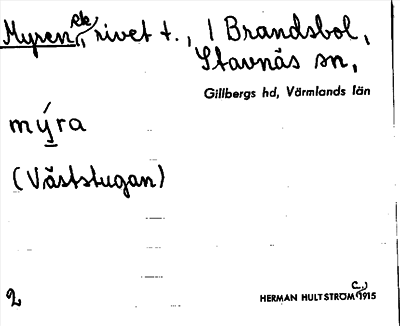 Myren, ek, rivet t., 1 Brandsbol,
Stavnäs sn,
Gillbergs hd, Värmlands län
mýra
(Väststugan)
2
HERMAN HULTSTRÖM c.) 1915